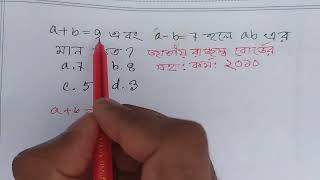 a+b=9 এবং a-b=7 হলে ab এর
মান ?
a.7 b.8
c.5 d.3
জাতীয় রাজস্ব বোর্ডের
সহ: কর্ম: ২০১০
a+b=